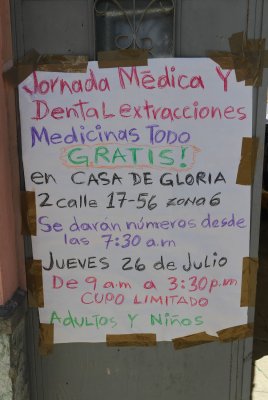 Jornada Médica Y
Dental extracciones
Medicinas TODO
GRATIS!
en CASA DE GLORIA
2 calle 17-56 zona 6
Se darán números desde
las 7:30 a.m
JUEVES 26 de Julio
De 9 am a 3:30 p.m.
CUPO LIMITADO
Adultos Y Niños